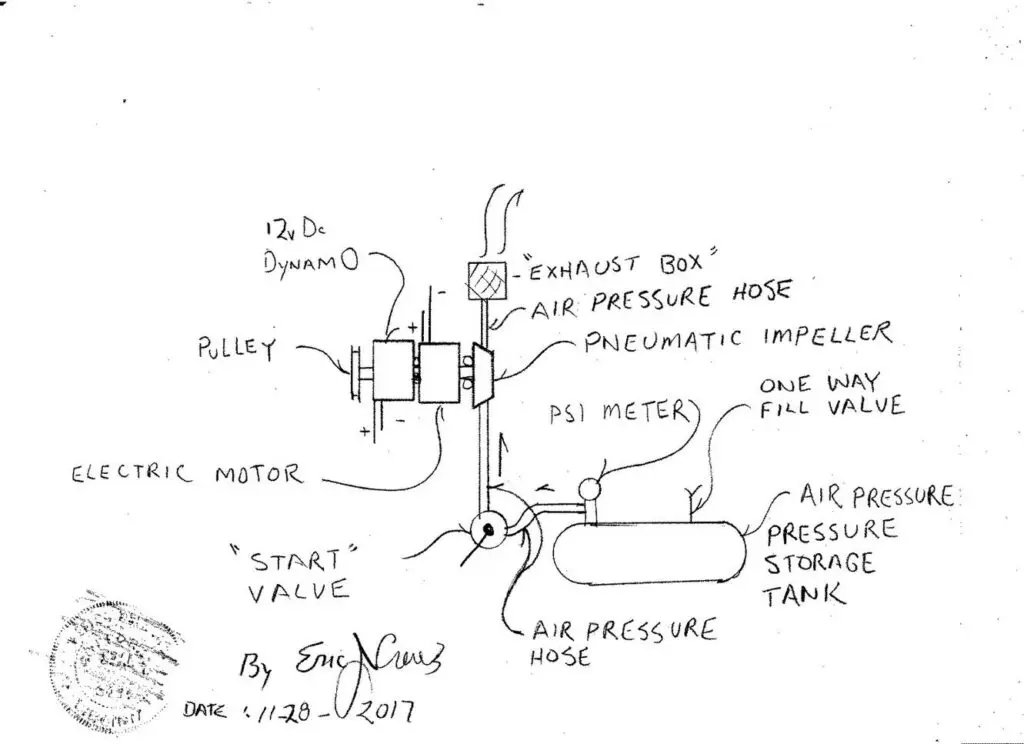 12v Dc
DYNAMO
"EXHAUST BOX"
AIR PRESSURE HOSE
PULLEY
PNEUMATIC IMPELLER
ONE WAY
FILL VALVE
PSI METER
+
-
+
-
ELECTRIC MOTOR
AIR PRESSURE
PRESSURE
STORAGE
TANK
"START"
VALVE
AIR PRESSURE
HOSE
By Eric
DATE : 11-28-2017